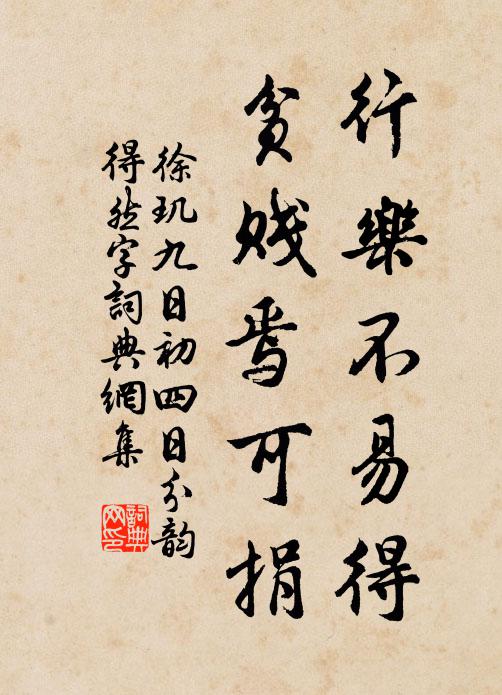 行樂不易得
貧賤焉可捐
徐玑九日初四日分韵
得然字詞典網集
詞典网印